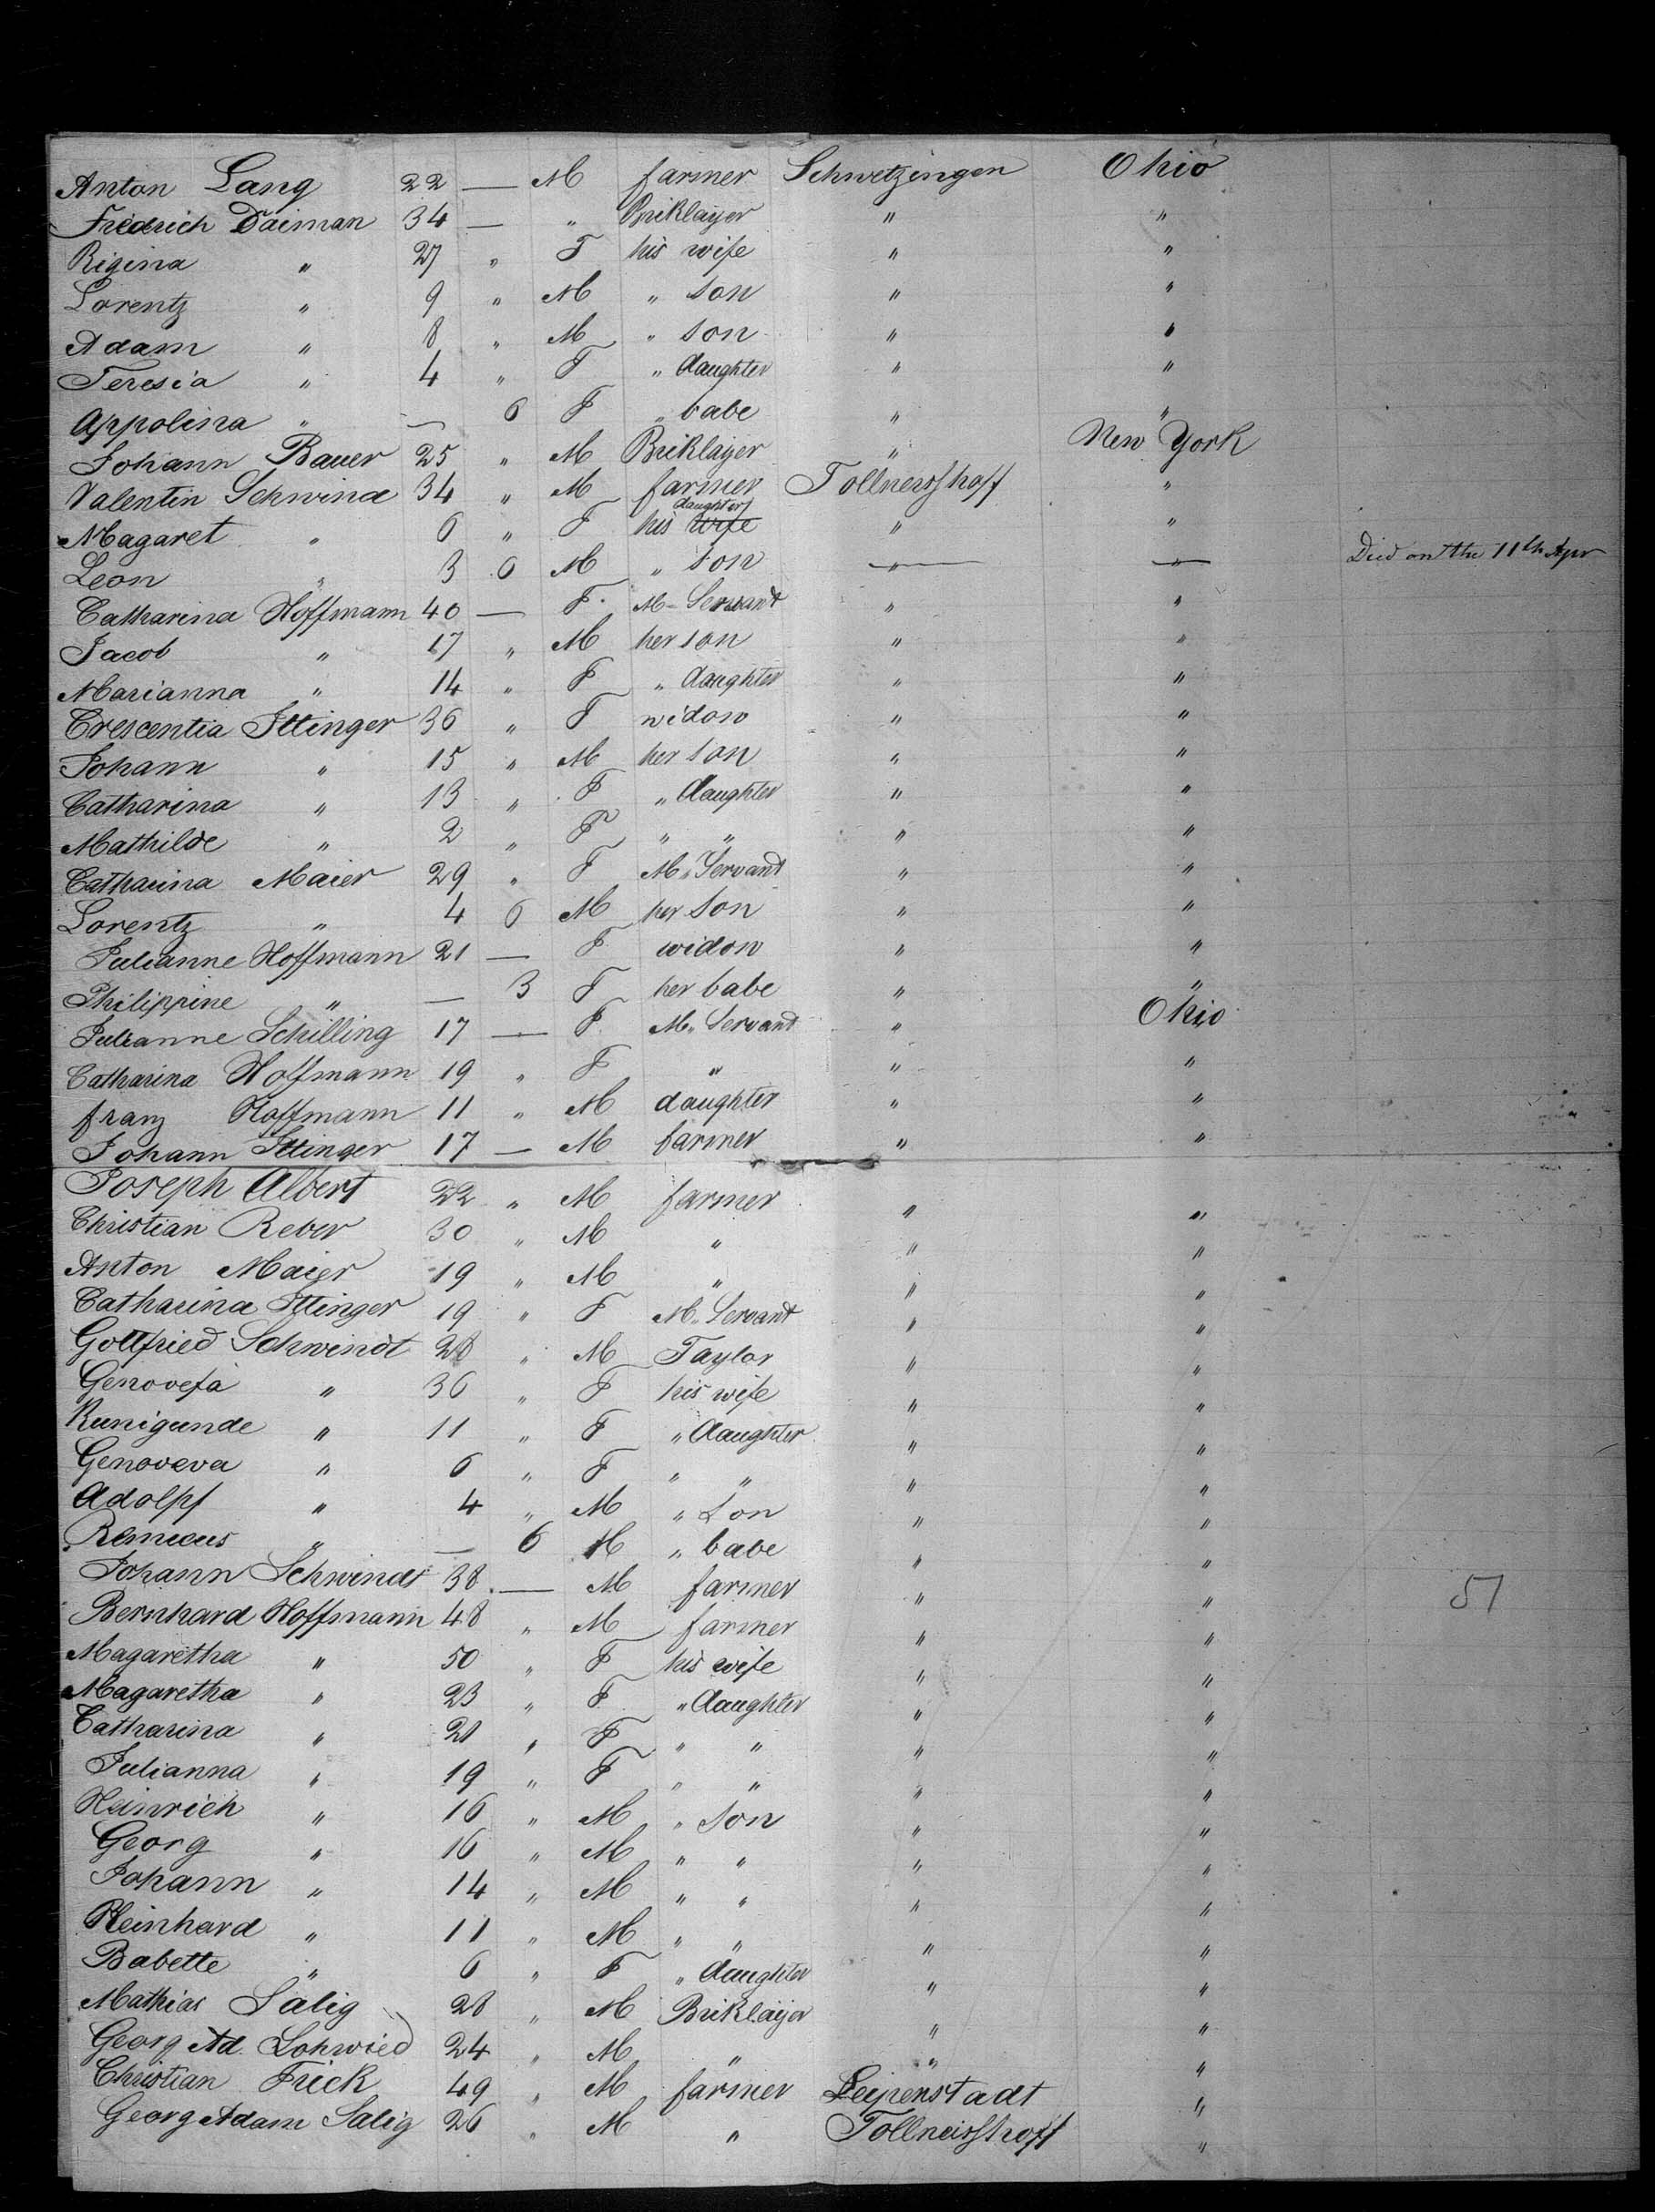 Anton Lang 22 — M farmer Schwetzingen Ohio
Friedrich Daiman 34 — " Briklayer " "
Rigina " 27 " F his wife " "
Lorentz " 9 " M " son " "
Adam " 8 " M " son " "
Teresia " 4 " F " daughter " "
Appolina " — 6 F " babe " "
Johann Bauer 25 " M Briklayer " New York
Valentin Schwind 34 " M farmer Tollnersshoff "
daughter
Magaret " 6 " F his wife " "
Leon " 3 6 M " son " " Died on the 11th Apr
Catharina Hoffmann 40 — F M Servant " "
Jacob " 17 " M her son " "
Marianna " 14 " F " daughter " "
Crescentia Ittinger 36 " F widow " "
Johann " 15 " M her son " "
Catharina " 13 " F " daughter " "
Mathilde " 2 " F " " " "
Catharina Maier 29 " F M. Servant " "
Lorentz " 4 6 M her son " "
Julianne Hoffmann 21 — F widow " "
Philippine " — 3 F her babe " "
Julianne Schilling 17 — F M. Servant " Ohio
Catharina Hoffmann 19 " F " " "
franz Hoffmann 11 " M daughter " "
Johann Ittinger 17 — M farmer " "
Joseph Albert 22 " M farmer " "
Christian Reber 30 " M " " "
Anton Maier 19 " M " " "
Catharina Ittinger 19 " F M. Servant " "
Gottfried Schwindt 28 " M Taylor " "
Genovefa " 36 " F his wife " "
Kunigunde " 11 " F " daughter " "
Genoveva " 6 " F " " " "
Adolpf " 4 " M " Son " "
" — 6 M " babe " "
Johann Schwindt 38 — M farmer " "
51
Bernhard Hoffmann 48 " M farmer " "
Magaretha " 50 " F his wife " "
Magaretha " 23 " F " daughter " "
Catharina " 21 " F " " " "
Julianna " 19 " F " " " "
Heinrich " 16 " M " son " "
Georg " 16 " M " " " "
Johann " 14 " M " " " "
Reinhard " 11 " M " " " "
Babette " 6 " F " daughter " "
Mathias Salig 28 " M Briklayer " "
Georg Ad. Lohwied 24 " M " " "
Christian Frick 49 " M farmer Leipenstadt "
Georg Adam Salig 26 " M " Tollneisshoff "